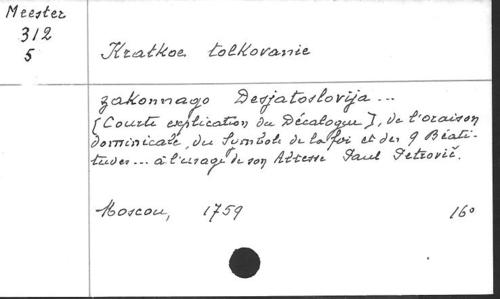 Meester
312
5
Kratkoe tolkovanie
zakonnago Desjatoslovija...
[Courte explication du Décalogue], de l'oraison
dominicale, du Symbole de la foi et des 9 Béati-
tudes... à l'usage de son Altesse Paul Petrovič.
Moscou, 1759 16°